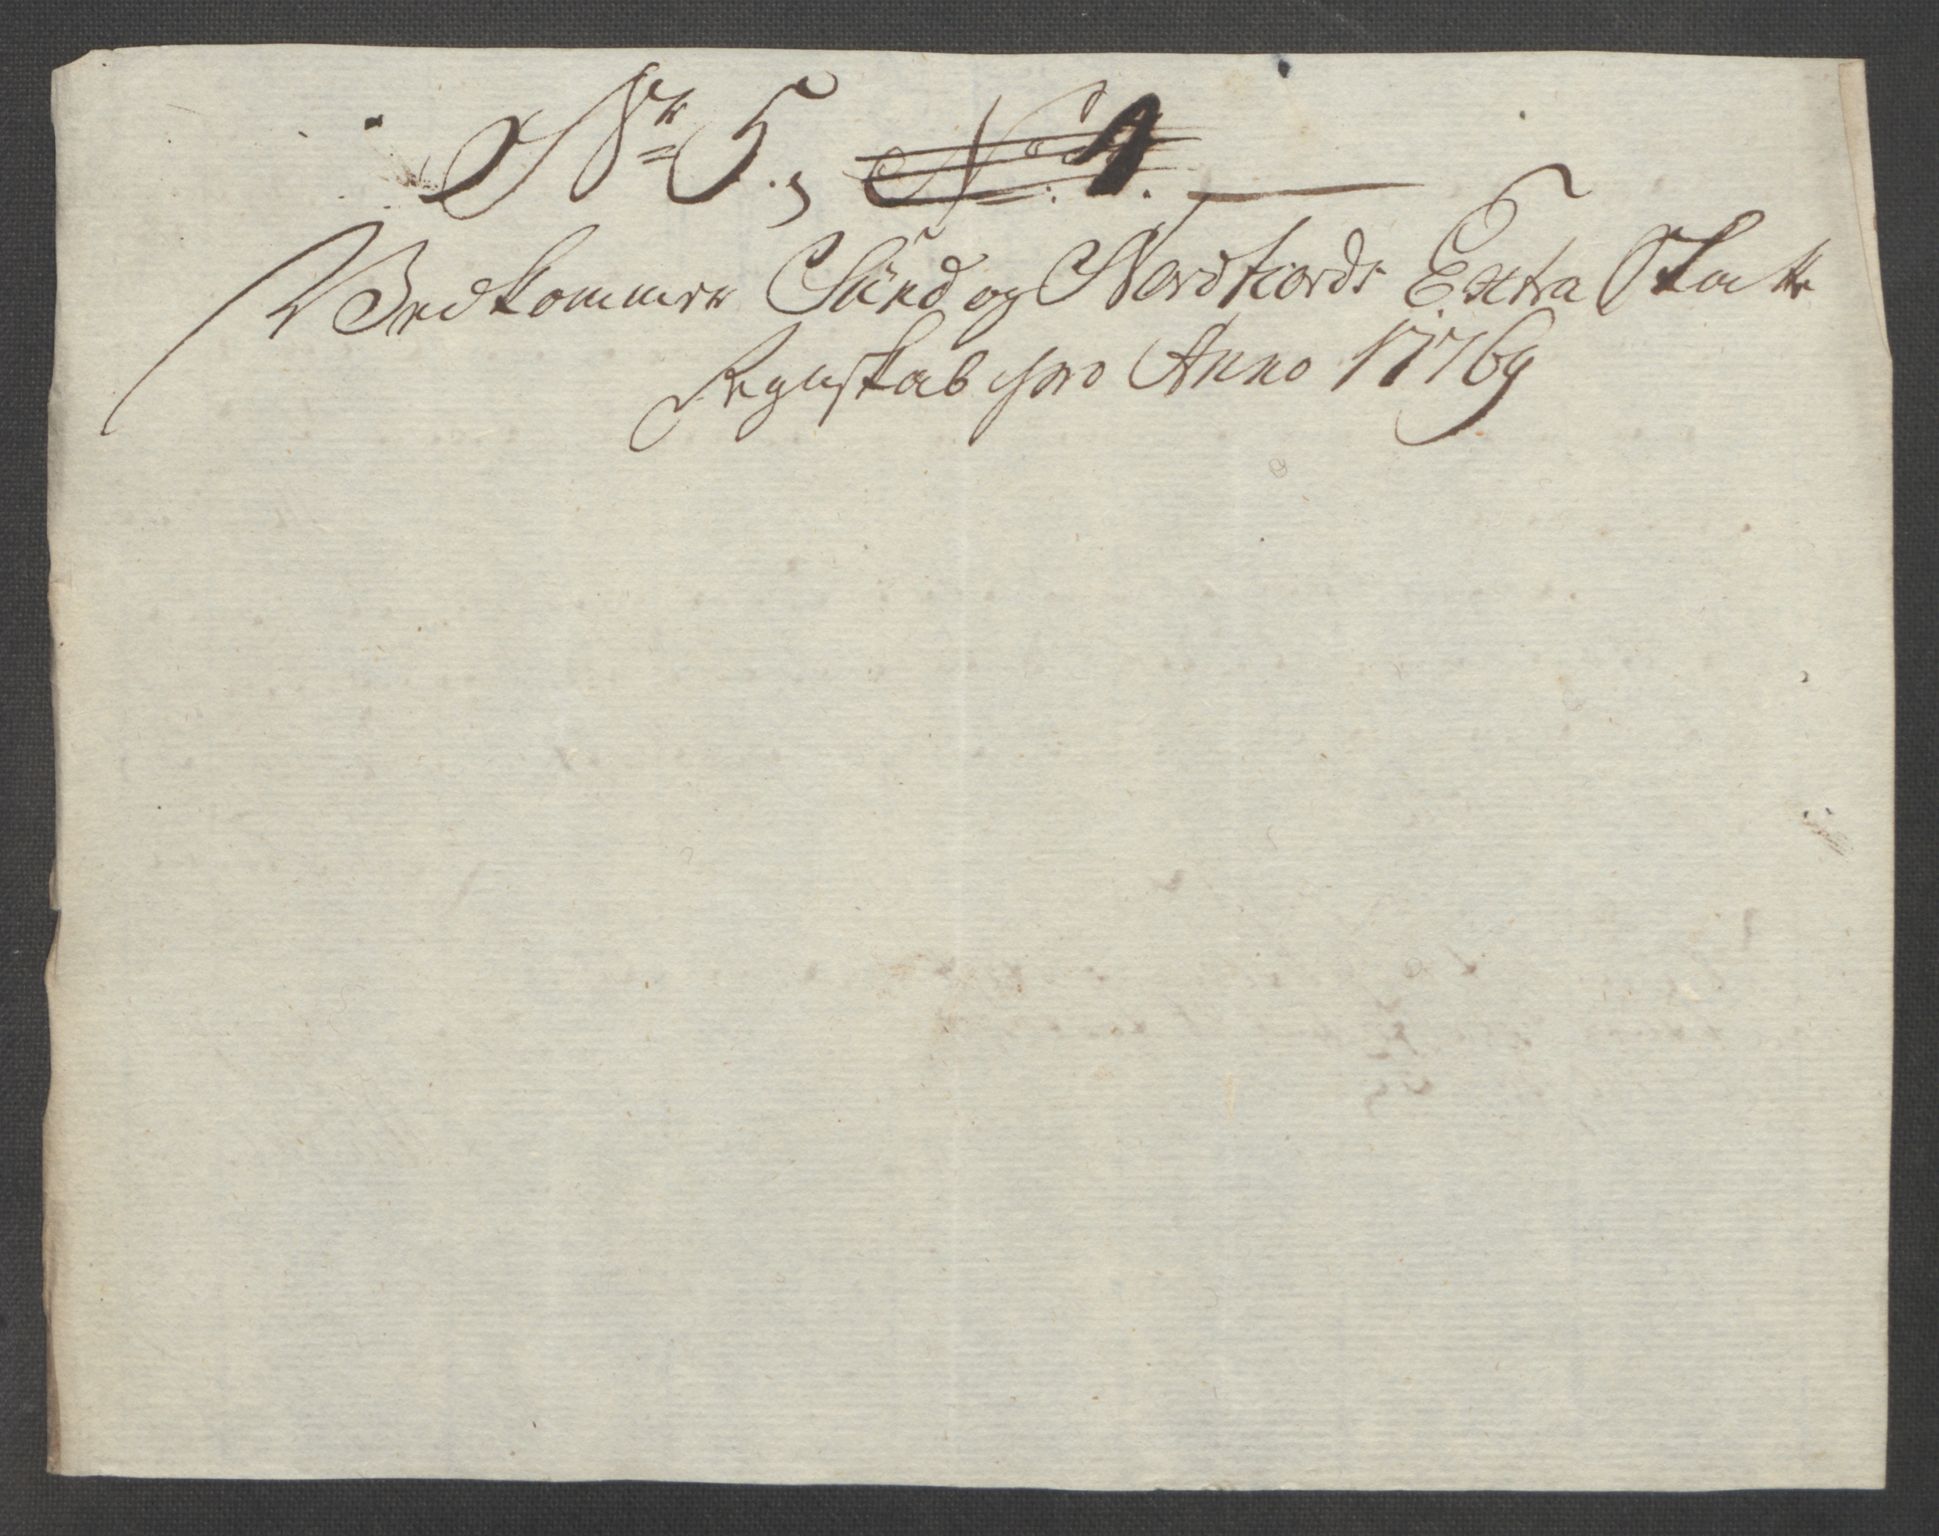 Nr 5., No 4.
Vedkommer Sünd og Nordfiords Extra Skatte
Regnskab pro Anno 1769